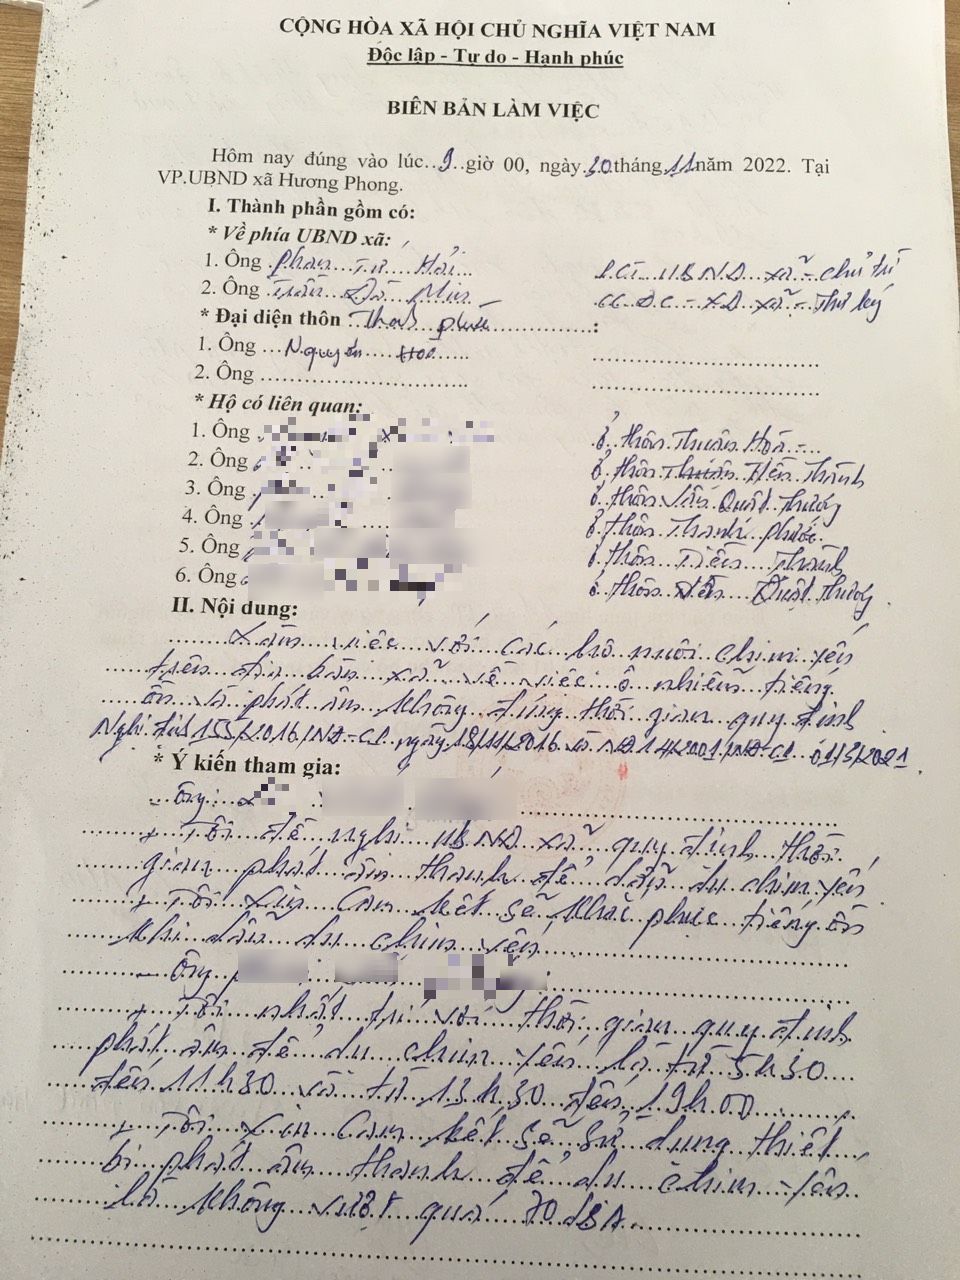 CỘNG HÒA XÃ HỘI CHỦ NGHĨA VIỆT NAM
Độc lập - Tự do - Hạnh phúc
BIÊN BẢN LÀM VIỆC
Hôm nay đúng vào lúc..9..giờ 00, ngày.30.tháng.11.năm 2022. Tại
VP.UBND xã Hương Phong.
I. Thành phần gồm có:
* Về phía UBND xã:
1. Ông Phan Tư Hải P.CT UBND xã - Chủ trì
2. Ông Trần CC ĐC-XD xã - Thư ký
* Đại diện thôn Thanh Phước:
1. Ông Nguyễn Hoà
2. Ông
* Hộ có liên quan:
1. Ông Ở thôn Thuận Hòa
2. Ông Ở thôn Tiền Thành
3. Ông Ở thôn Vân Quật Thượng
4. Ông Ở thôn Thanh Phước
5. Ông Ở thôn Tiền Thành
6. Ông Ở thôn Vân Quật Thượng
II. Nội dung:
Làm việc với các hộ nuôi chim yến
trên địa bàn xã về việc ô nhiễm tiếng
ồn và phát âm không đúng thời gian quy định
Nghị định 155/2016/NĐ-CP ngày 18/11/2016 và NĐ 14/2021/NĐ-CP 01/3/2021
* Ý kiến tham gia:
- Ông:
+ Tôi đề nghị UBND xã quy định thời
gian phát âm thanh để dẫn dụ chim yến
+ Tôi xin cam kết sẽ khắc phục tiếng ồn
khi dẫn dụ chim yến
- Ông
+ Tôi nhất trí với thời gian quy định
phát âm để dụ chim yến là từ 5h30
đến 11h30 và từ 13h30 đến 19h00
+ Tôi xin cam kết sẽ sử dụng thiết
bị phát âm thanh để dụ chim yến
là không vượt quá 70 dBA.